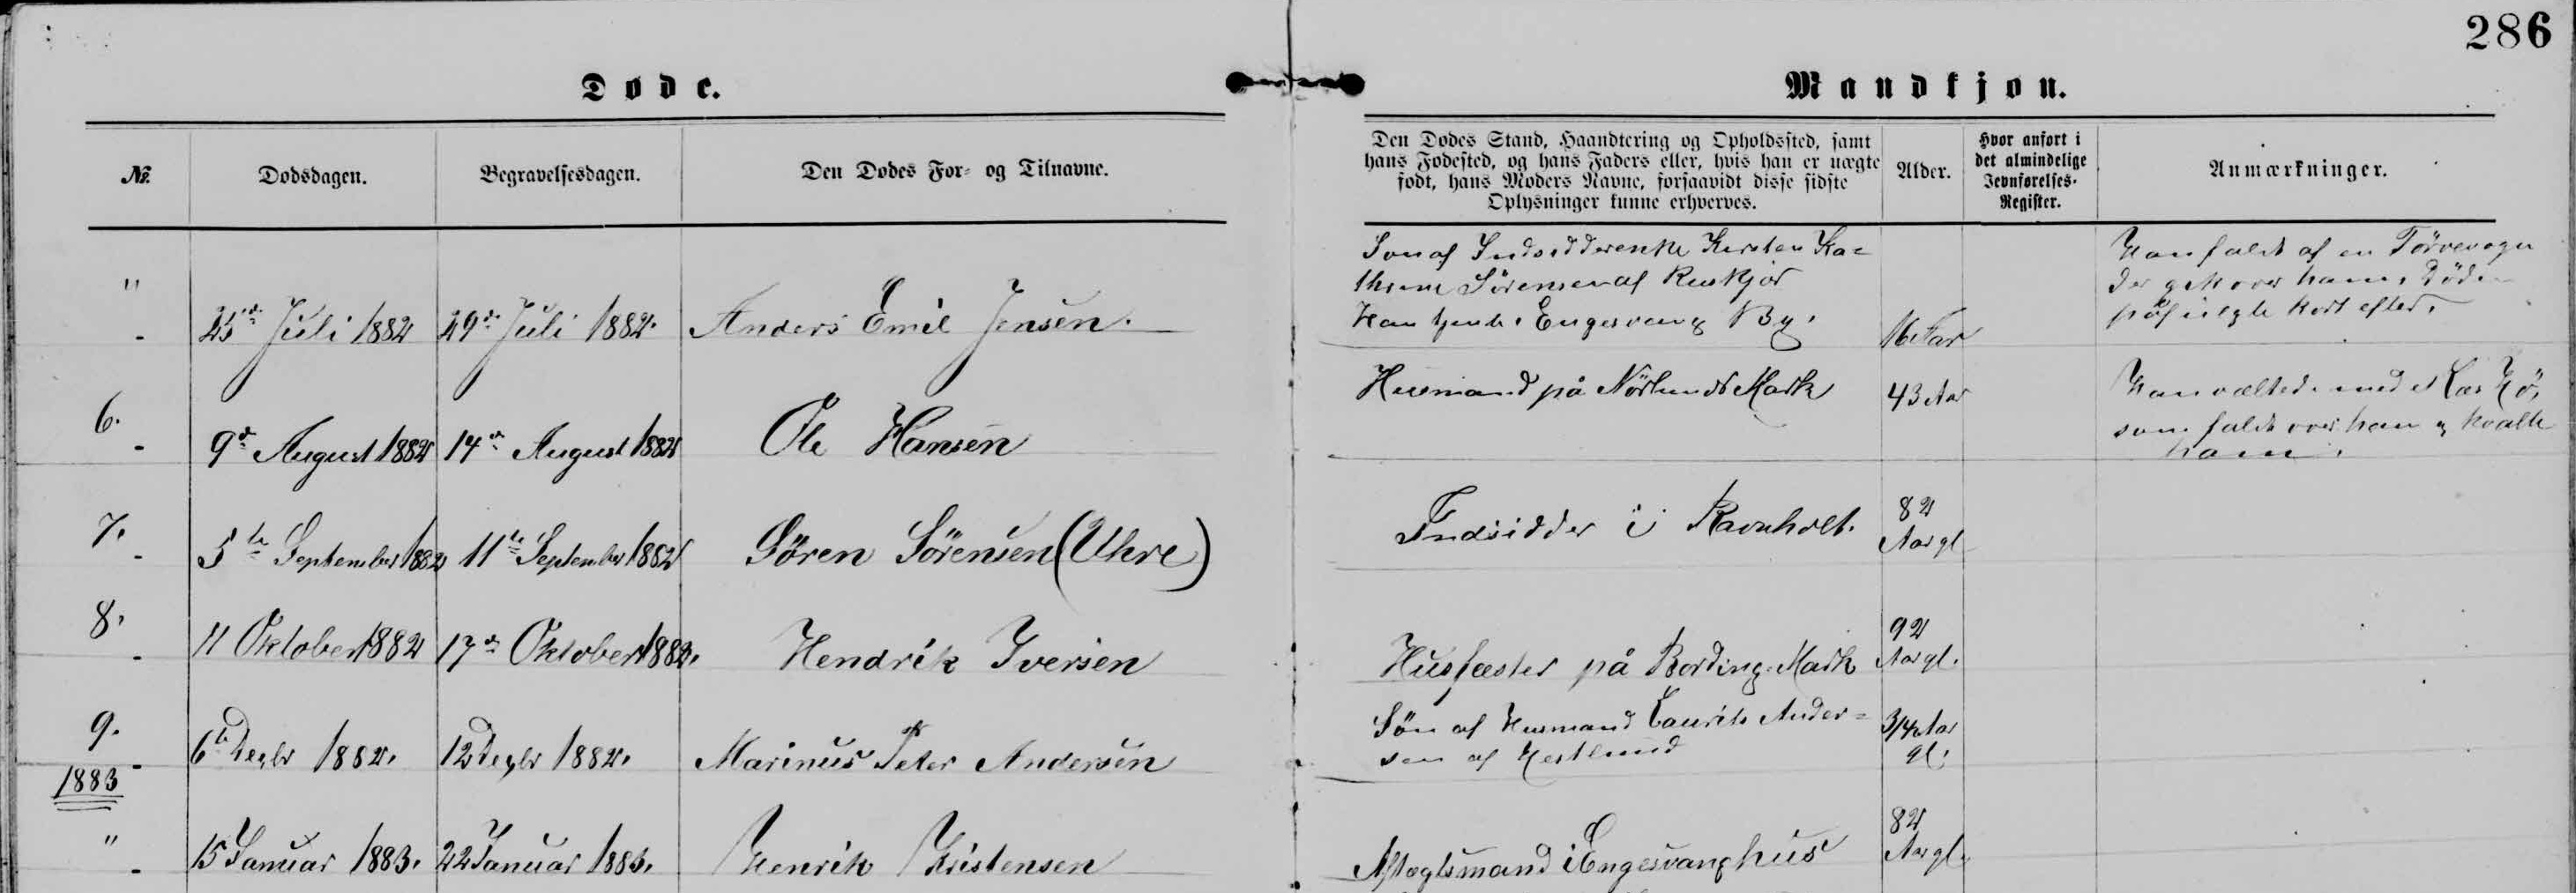 286
Døde.
Mandkjøn.
№.
Dødsdagen.
Begravelsesdagen.
Den Dødes For- og Tilnavne.
Den Dødes Stand, Haandtering og Opholdssted, samt
hans Fødested, og hans Faders eller, hvis han er uægte
født, hans Moders Navne, forsaavidt disse sidste
Oplysninger kunne erhverves.
Alder.
Hvor anført i
det almindelige
Jevnførelses-
Register.
Anmærkninger.
"
-
25de Juli 1882
29de Juli 1882.
Anders Emil Jensen.
Søn af Indsidderenke Kirsten Ka-
thrine Sörensen af Reskjær
Han tjente i Engesvang By.
16 Aar
Han faldt af en Törvevogn
der gik over ham, Döden
påfulgte kort efter.
6.
-
9de August 1882
14de August 1882
Ole Hansen
Husmand på Nörlund Mark
43 Aar
Han væltede med et Læs Hö,
som faldt over ham og kvalte
ham.
7.
-
5te September 1882
11te September 1882
Sören Sörensen (Uhre)
Indsidder i Ravnholt.
82
Aar gl
8.
-
11 Oktober 1882
17de Oktober 1882.
Hendrik Iversen
Husfæster på Bording Mark
92
Aar gl.
9.
-
6te Decbr 1882.
12 Decbr 1882.
Marinus Peter Andersen
Sön af Husmand Laurits Ander-
sen af Hestlund
3/4 Aar
gl.
1883
"
-
15 Januar 1883.
22 Januar 1883.
Henrik Kristensen
Aftægtsmand i Engesvanghus
82
Aar gl.